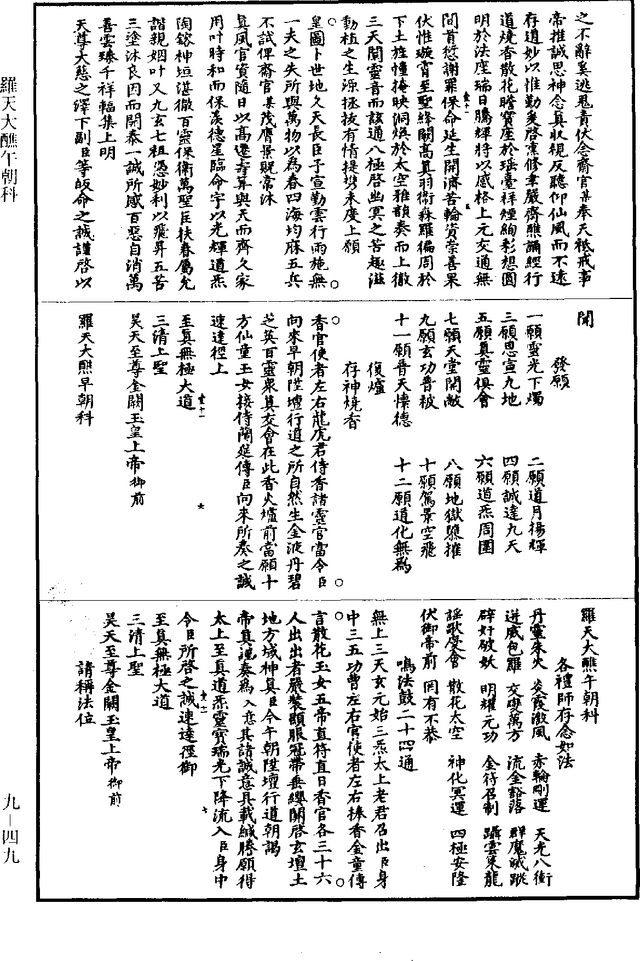 之不辭奚逃鬼責伏念齋官某奉天祗戒事
帝推誠思神念真収視反聽仰仙風而不遠
存道妙以惟勤爰啓熏修聿嚴齋醮誦經行
道燒香散花瞻寶座於瑤臺祥煙絢彩想圓
明於法座瑞日騰輝將以感格上元交通無
間首愆謝罪保命延生開濟苦輪資崇善果
伏惟璇霄至聖絳闕高真羽衛森羅徧周於
下土旌幢掩映洞煥於太空推韻奏而上徹
三天闡靈音而該通八極啓幽冥之苦趣滋
動植之生源拯拔有情提携未度上願
皇圖卜世地久天長臣子宣勤雲行雨施無
一夫之失所與萬物以為春四海均庥五兵
不試俾齋官某茂膺景貺常沐
真風官資隨日以高遷壽算與天而齊久家
用叶時和而保羨德星臨命宇以光輝道炁
陶鎔神垣湛徹百靈保衛萬聖匡扶眷屬允
諧親姻叶乂九玄七祖憑妙利以飛昇五苦
三塗沐良因而開泰一誠所感百惡自消萬
善雲臻千祥輻集上明
天尊大慈之澤下副臣等皈命之誠謹啓以
聞
發願
一願靈光下燭 二願道月揚輝
三願思宣九地 四願誠達九天
五願真靈俱會 六願道炁周圓
七願天堂開敞 八願地獄隳摧
九願玄功普被 十願駕景空飛
十一願普天懷德 十二願道化無為
復爐
存神燒香
香官使者左右龍虎君侍香諸靈官當令臣
向來早朝陞壇行道之所自然生金液丹碧
芝英百靈衆真交會在此香火爐前當願十
方仙童玉女接侍蘭延傳臣向來所奏之誠
速達徑上
至真無極大道
三清上聖
昊天至尊金闕玉皇上帝御前
羅天大醮早朝科
羅天大醮午朝科
各禮師存念如法
丹靈朱火 炎霞激風 赤輪剛運 天光八衝
迸威包羅 交礙萬方 流金豁落 群魔滅蹤
辟奸破妖 明耀元功 金符召制 躡雲策龍
謡歌慶會 散花太空 神化冥運 四極安隆
伏御帝前 罔有不恭
鳴法鼓二十四通
無上三天玄元始三炁太上老君召出臣身
中三五功曹左右官使者左右捧香金童傳
言散花玉女五帝直符直日香官各三十六
人出出者嚴裝顯服冠帶垂纓關啓玄壇土
地方域神真臣今午朝陞壇行道朝謁
帝真謹奏為入意其諸誠意具載緘牒願得
太上至真道炁靈寶瑞光下降流入臣身中
令臣所啓之誠速達徑御
至真無極大道
三清上聖
昊天至尊金闕玉皇上帝御前
請稱法位
羅天大醮午朝科
九－四九